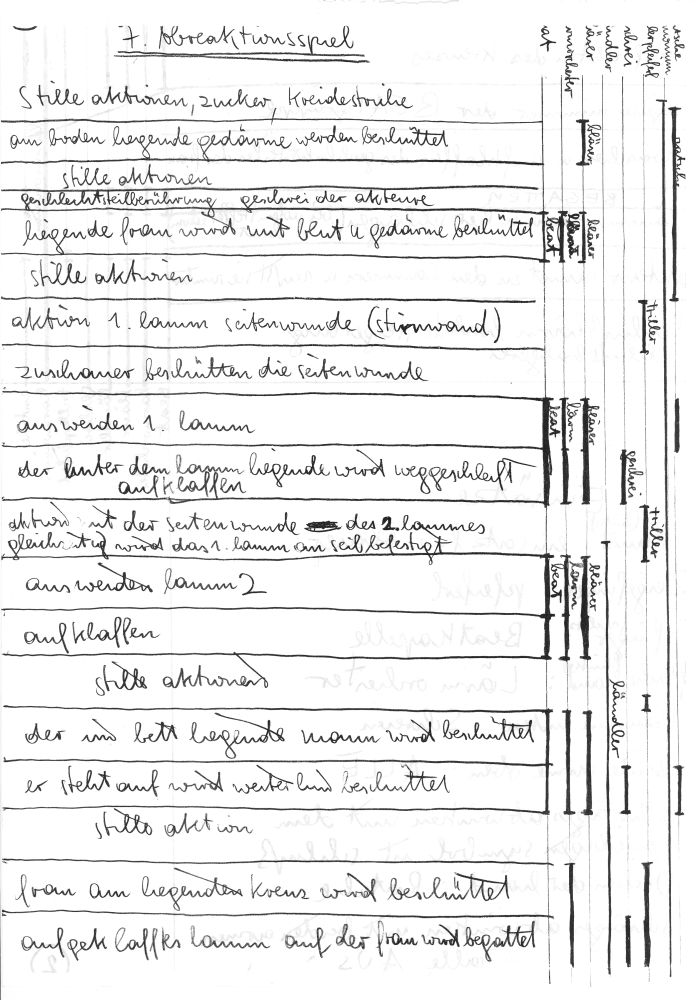 7. Abreaktionsspiel
beat
lärmorchester
bläser
ländler
schrei
stille aktionen, zucker, kreidestriche
am boden liegende gedärme werden beschüttet
bläser
stille aktionen
geschlechtsteilberührung geschrei der akteure
liegende frau wird mit blut u gedärme beschüttet
beat
bläser
stille aktionen
aktion 1. lamm seitenwunde (stirnwand)
triller
zuschauer beschütten die seitenwunde
ausweiden 1. lamm
beat
lärm
bläser
der hinter dem lamm liegende wird weggeschleift
aufklaffen
geschrei
mit der seitenwunde des 2. lammes
gleichzeitig wird das 1. lamm an seil befestigt
triller
ausweiden lamm 2
beat
lärm
bläser
aufklaffen
stille aktionen
ländler
der im bett liegende mann wird beschüttet
er steht auf wird weiterhin beschüttet
stille aktion
frau am liegenden kreuz wird beschüttet
aufgeklafftes lamm auf der frau wird begattet